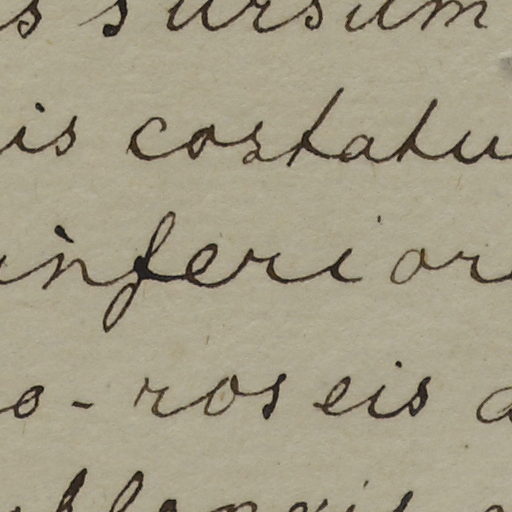 s sursum
is costatu
inferior
o-roseis a